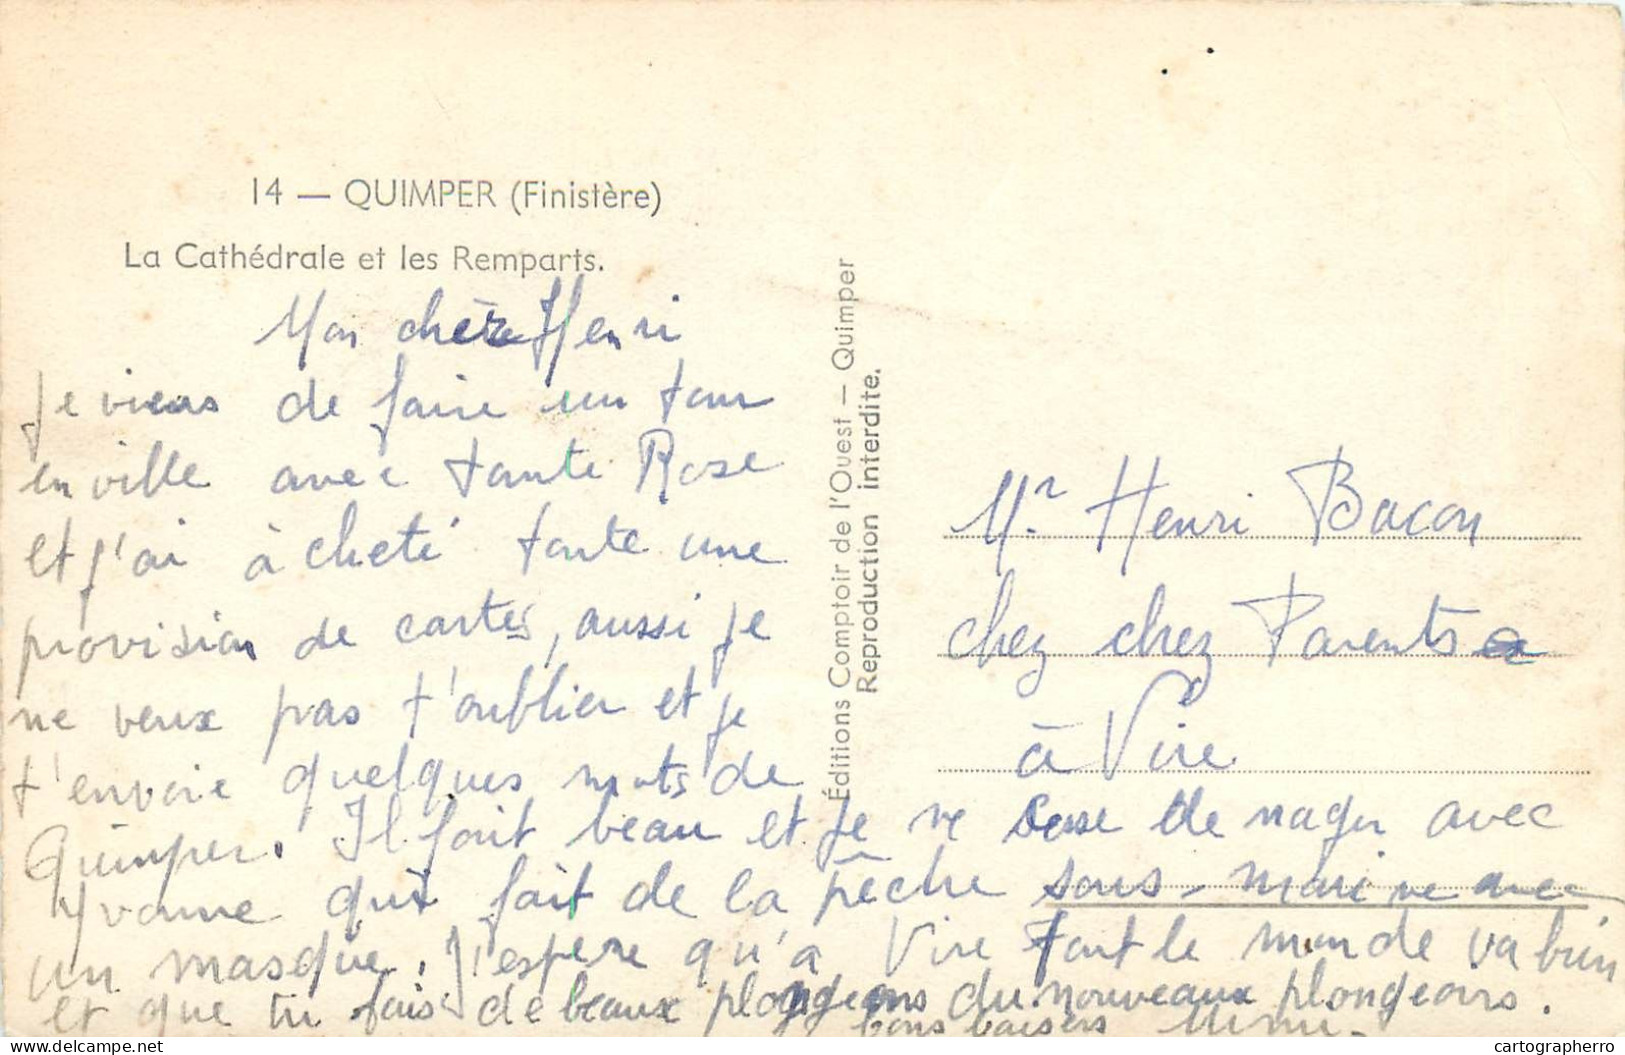 14 — QUIMPER (Finistère)
La Cathédrale et les Remparts.
Mon chère Henri
Je viens de faire un tour
en ville avec tante Rose
et j'ai à cheté toute une
provision de cartes, aussi je
ne veux pas t'oublier et je
t'envoie quelques mots de
Quimper. Il fait beau et je ne cesse de nager avec
Yvonne qui fait de la pêche sous-marine avec
un masque. J'espère qu'a Vire tout le monde va bien
et que tu fais de beaux plongeons du nouveaux plongeoirs.
bons baisers Mimi.
Éditions Comptoir de l'Ouest — Quimper
Reproduction interdite.
Mr. Henri Bacon
chez chez Parents
à Vire
delcampe.net
cartographerro